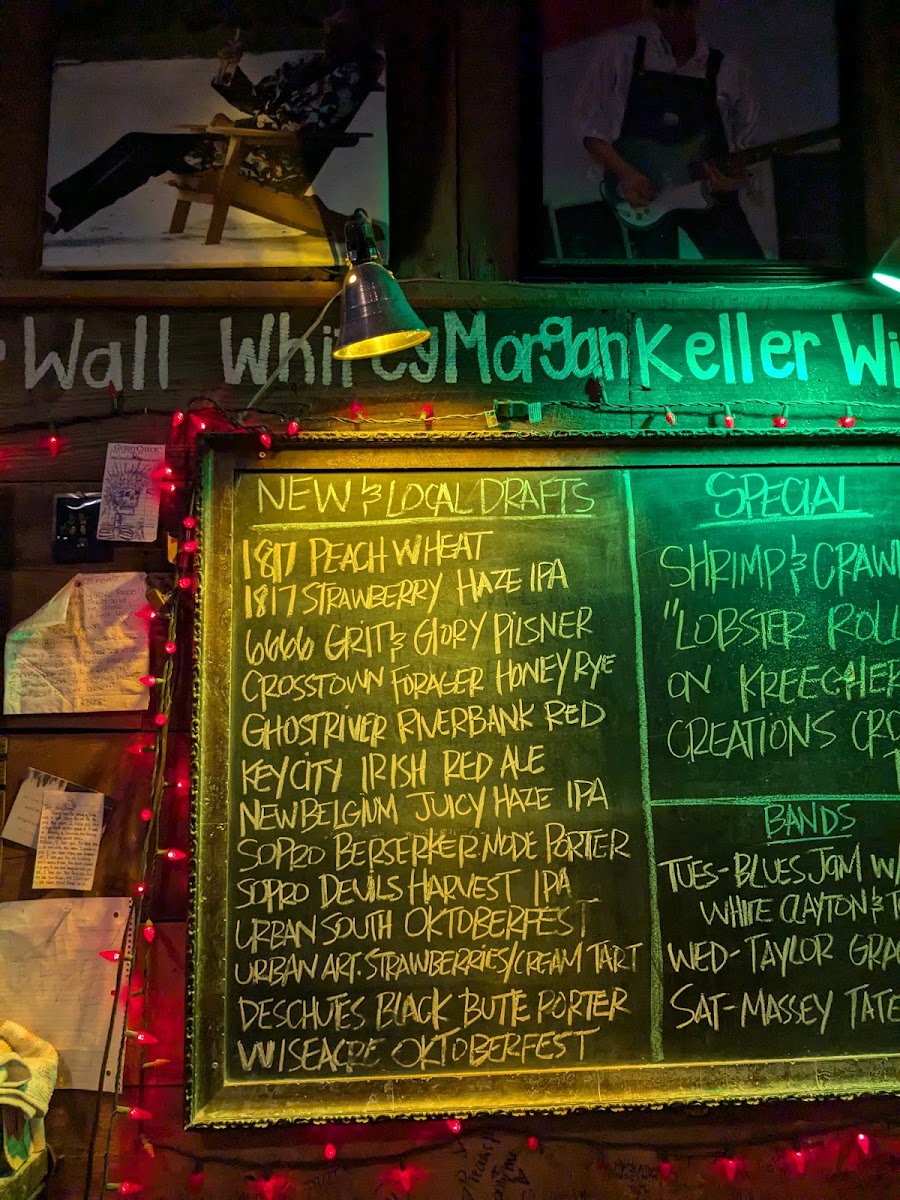 Wall Whitney Morgan Keller Wi
GUEST CHECK
NEW & LOCAL DRAFTS
1817 PEACH WHEAT
1817 STRAWBERRY HAZE IPA
6666 GRIT & GLORY PILSNER
CROSSTOWN FORAGER HONEY RYE
GHOST RIVER RIVERBANK RED
KEY CITY IRISH RED ALE
NEW BELGIUM JUICY HAZE IPA
SOPRO BERSERKER MODE PORTER
SOPRO DEVILS HARVEST IPA
URBAN SOUTH OKTOBERFEST
URBAN ART. STRAWBERRIES/CREAM TART
DESCHUTES BLACK BUTTE PORTER
WISEACRE OKTOBERFEST
SPECIAL
SHRIMP & CRAW
"LOBSTER ROLL
ON KREECHER
CREATIONS CRO
BANDS
TUES-BLUES JAM W/
WHITE CLAYTON & T
WED-TAYLOR GRA
SAT-MASSEY TATE